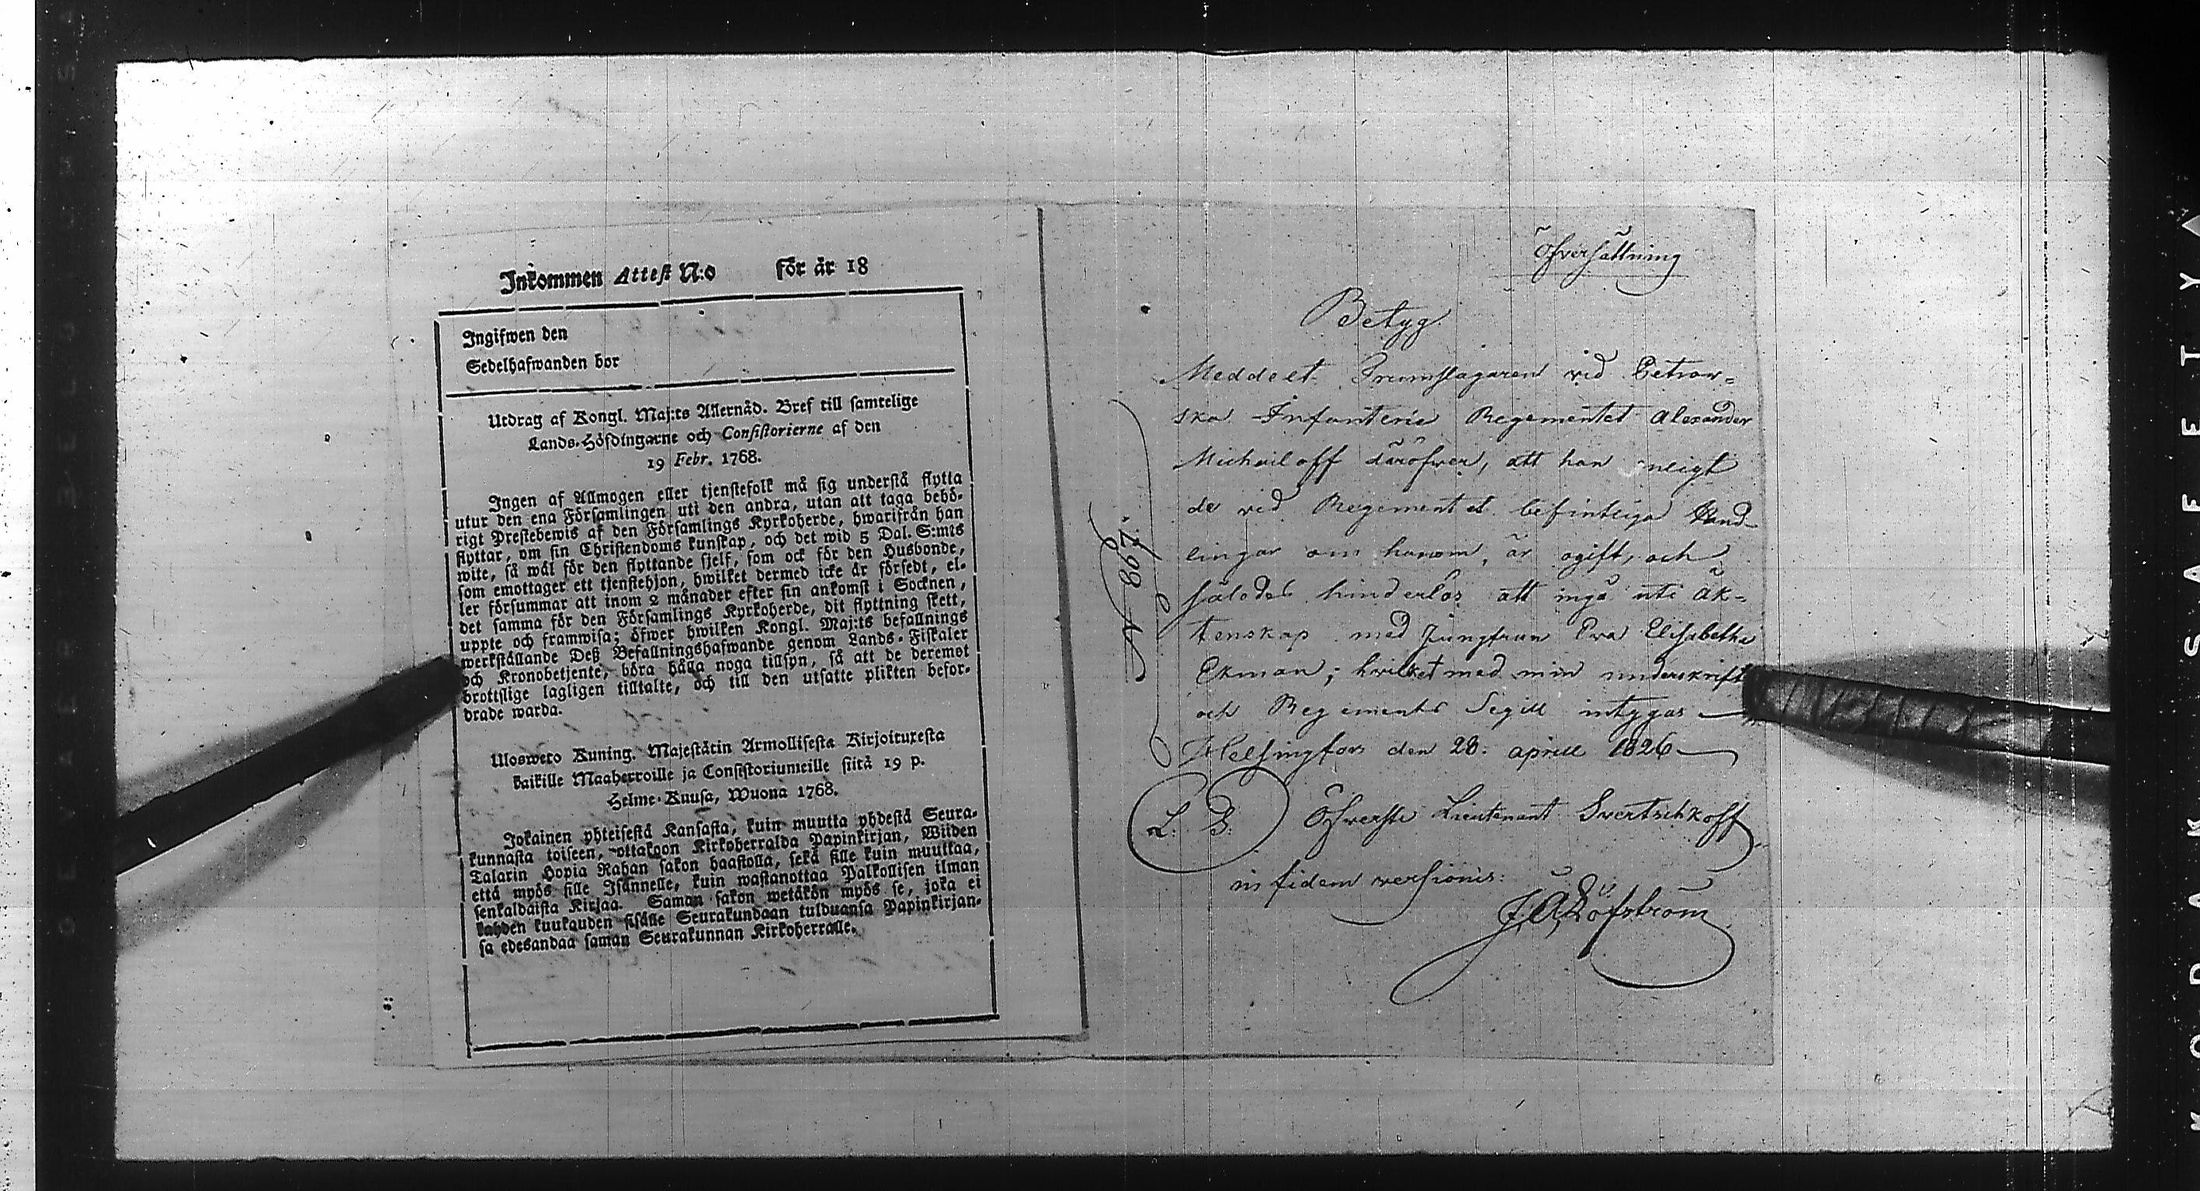 Inkommen Attest N:o för år 18
Ingifwen den
Sedelhafwanden bor
Utdrag af Kongl. Maj:ts Allernåd. Bref till samtelige
Lands-Höfdingarne och Consistorierne af den
19 Febr. 1768.
Ingen af Allmogen eller tjenstefolk må sig understå flytta
utur den ena Församlingen uti den andra, utan att taga behö-
rigt Prestebewis af den Församlings Kyrkoherde, hwarifrån han
flyttar, om sin Christendoms kunskap, och det wid 5 Dal. S:mts
wite, så wäl för den flyttande sjelf, som ock för den Husbonde,
som emottager ett tjenstehjon, hwilket dermed icke är försedt, el-
ler försummar att inom 2 månader efter sin ankomst i Socknen,
det samma för den Församlings Kyrkoherde, dit flyttning skett,
uppte och framwisa; öfwer hwilken Kongl. Maj:ts befallnings
werkställande Deß Befallningshafwande genom Lands-Fiskaler
och Kronobetjente, böra hålla noga tillsyn, så att de deremot
brottslige lagligen tilltalte, och till den utsatte plikten befor-
drade warda.
Ulosweto Kuning. Majestätin Armollisesta Kirjoituxesta
kaikille Maaherroille ja Consistoriumeille siitä 19 p.
Helme-Kuusa, Wuona 1768.
Jokainen yhteisestä Kansasta, kuin muutta yhdestä Seura-
kunnasta toiseen, ottakoon Kirkoherralda Papinkirjan, Wiiden
Talarin Hopia Rahan sakon haastolla, sekä sille kuin muuttaa,
että myös sille Isännelle, kuin wastanottaa Palkollisen ilman
senkaldaista Kirjaa. Saman sakon wetäkön myös se, joka ei
kahden kuukauden sisälle Seurakundaan tulduansa Papinkirjan-
sa edesandaa saman Seurakunnan Kirkoherralle.
Öfversättning
Betyg
Meddelt Trumslagaren vid Petrow-
ska Infanterie Regementet Alexander
Michailoff däröfwer, att han enligt
de vid Regementet befintliga Hand-
lingar om honom, är ogift, och
således hinderlös att ingå uti Äk-
tenskap med Jungfrun Eva Elisabetha
Ekman; hvilket med min underskrift
och Regements Segill intygas
Helsingfors den 28: aprill 1826
N 867.
L. S. Öfwerste Lieutenant Svertschkoff
in fidem versionis:
J. A. Löfström